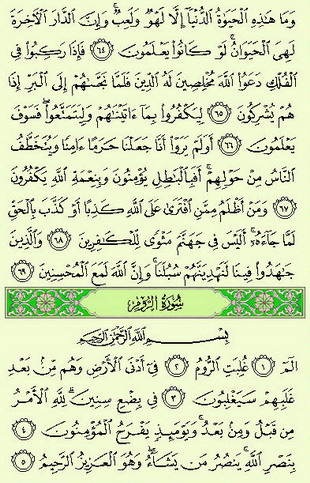 وَمَا هَٰذِهِ ٱلْحَيَوٰةُ ٱلدُّنْيَآ إِلَّا لَهْوٌ وَلَعِبٌ ۚ وَإِنَّ ٱلدَّارَ ٱلْءَاخِرَةَ
لَهِىَ ٱلْحَيَوَانُ ۚ لَوْ كَانُوا۟ يَعْلَمُونَ ٦٤ فَإِذَا رَكِبُوا۟ فِى
ٱلْفُلْكِ دَعَوُا۟ ٱللَّهَ مُخْلِصِينَ لَهُ ٱلدِّينَ فَلَمَّا نَجَّىٰهُمْ إِلَى ٱلْبَرِّ إِذَا
هُمْ يُشْرِكُونَ ٦٥ لِيَكْفُرُوا۟ بِمَآ ءَاتَيْنَٰهُمْ وَلِيَتَمَتَّعُوا۟ ۖ فَسَوْفَ
يَعْلَمُونَ ٦٦ أَوَلَمْ يَرَوْا۟ أَنَّا جَعَلْنَا حَرَمًا ءَامِنًا وَيُتَخَطَّفُ
ٱلنَّاسُ مِنْ حَوْلِهِمْ ۚ أَفَبِٱلْبَٰطِلِ يُؤْمِنُونَ وَبِنِعْمَةِ ٱللَّهِ يَكْفُرُونَ
٦٧ وَمَنْ أَظْلَمُ مِمَّنِ ٱفْتَرَىٰ عَلَى ٱللَّهِ كَذِبًا أَوْ كَذَّبَ بِٱلْحَقِّ
لَمَّا جَآءَهُۥٓ ۚ أَلَيْسَ فِى جَهَنَّمَ مَثْوًى لِّلْكَٰفِرِينَ ٦٨ وَٱلَّذِينَ
جَٰهَدُوا۟ فِينَا لَنَهْدِيَنَّهُمْ سُبُلَنَا ۚ وَإِنَّ ٱللَّهَ لَمَعَ ٱلْمُحْسِنِينَ ٦٩
سُورَةُ الرُّومِ
بِسْمِ ٱللَّهِ ٱلرَّحْمَٰنِ ٱلرَّحِيمِ
الٓمٓ ١ غُلِبَتِ ٱلرُّومُ ٢ فِىٓ أَدْنَى ٱلْأَرْضِ وَهُم مِّنۢ بَعْدِ
غَلَبِهِمْ سَيَغْلِبُونَ ٣ فِى بِضْعِ سِنِينَ ۗ لِلَّهِ ٱلْأَمْرُ
مِن قَبْلُ وَمِنۢ بَعْدُ ۚ وَيَوْمَئِذٍ يَفْرَحُ ٱلْمُؤْمِنُونَ ٤
بِنَصْرِ ٱللَّهِ ۚ يَنصُرُ مَن يَشَآءُ ۖ وَهُوَ ٱلْعَزِيزُ ٱلرَّحِيمُ ٥